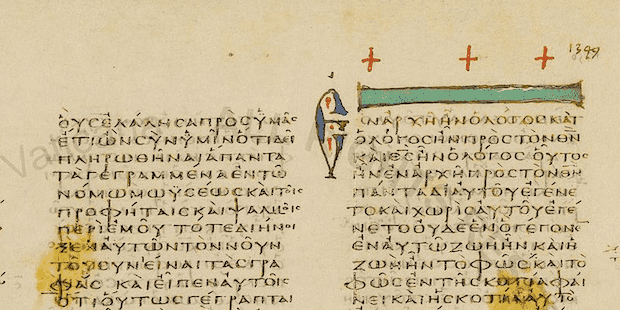 1349
ΟΥϹΕΛΑΛΗϹΑΠΡΟϹΥΜΑϹ
ΕΤΙΩΝϹΥΝΥΜΙΝΟΤΙΔΕΙ
ΠΛΗΡΩΘΗΝΑΙΑΠΑΝΤΑ
ΤΑΓΕΓΡΑΜΜΕΝΑΕΝΤΩ
ΝΟΜΩΜΩΥϹΕΩϹΚΑΙΤΟΙϹ
ΠΡΟΦΗΤΑΙϹΚΑΙΨΑΛΜΟΙϹ
ΠΕΡΙΕΜΟΥΤΟΤΕΔΙΗΝΟΙ
ΞΕΝΑΥΤΩΝΤΟΝΝΟΥΝ
ΤΟΥϹΥΝΕΙΝΑΙΤΑϹΓΡΑ
ΦΑϹΚΑΙΕΙΠΕΝΑΥΤΟΙϹ
ΟΤΙΟΥΤΩϹΓΕΓΡΑΠΤΑΙ
ΕΝΑΡΧΗΗΝΟΛΟΓΟϹΚΑΙ
ΟΛΟΓΟϹΗΝΠΡΟϹΤΟΝΘΝ
ΚΑΙΘϹΗΝΟΛΟΓΟϹΟΥΤΟϹ
ΗΝΕΝΑΡΧΗΠΡΟϹΤΟΝΘΝ
ΠΑΝΤΑΔΙΑΥΤΟΥΕΓΕΝΕ
ΤΟΚΑΙΧΩΡΙϹΑΥΤΟΥΕΓΕ
ΝΕΤΟΟΥΔΕΕΝΟΓΕΓΟΝΕΝ
ΕΝΑΥΤΩΖΩΗΗΝΚΑΙΗ
ΖΩΗΗΝΤΟΦΩϹΚΑΙΤΟ
ΦΩϹΕΝΤΗϹΚΟΤΙΑΦΑΙ
ΝΕΙΚΑΙΗϹΚΟΤΙΑΑΥΤΟ